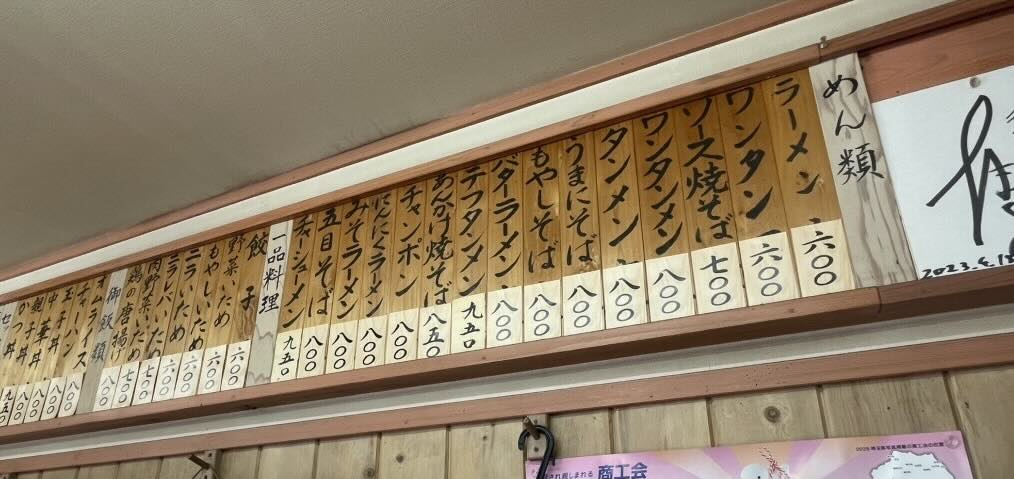 めん類
ラーメン 六〇〇
ワンタン 六〇〇
ソース焼そば 七〇〇
ワンタンメン 八〇〇
タンメン 八〇〇
うまにそば 八〇〇
もやしそば 八〇〇
バターラーメン 八〇〇
テフタンメン 九五〇
あんかけ焼そば 八五〇
チャンポン 八〇〇
にんにくラーメン 八〇〇
みそラーメン 八〇〇
五目そば 八〇〇
チャーシューメン 九五〇
一品料理
餃子
野菜いため 六〇〇
もやしいため 六〇〇
ニラいため 六〇〇
ニラレバいため 六〇〇
肉野菜いため 七〇〇
鶏の唐揚げ 七〇〇
御飯類
オムライス
チャーハン 八〇〇
玉子丼 八〇〇
中華丼 八〇〇
親子丼 八〇〇
かつ丼 八〇〇
九五〇
2023.6.15
され親しまれる 商工会